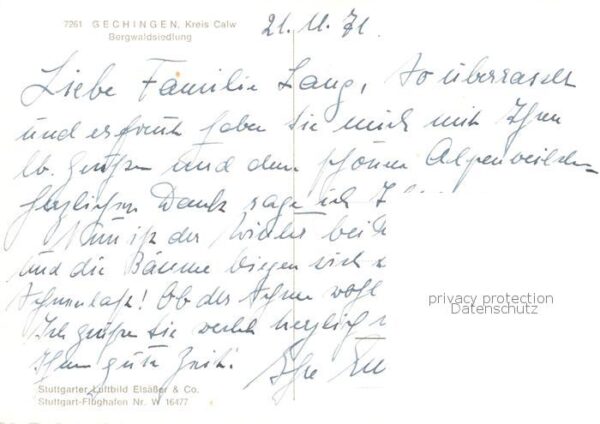 7261 GECHINGEN, Kreis Calw
Bergwaldsiedlung
21. 11. 71.
Liebe Familie Lang, so überrascht
und erfreut haben Sie mich mit Ihren
lb. Grüßen und dem schönen Alpenveilchen
herzlichen Dank sage ich
Nun ist der Winter bei
und die Bäume biegen sich
Schneelast! Ob der Schnee wohl
Ich grüße Sie herzlich
Ihnen gute Zeit! Ihre
privacy protection
Datenschutz
Stuttgarter Luftbild Elsäßer & Co.
Stuttgart-Flughafen Nr. W 16477